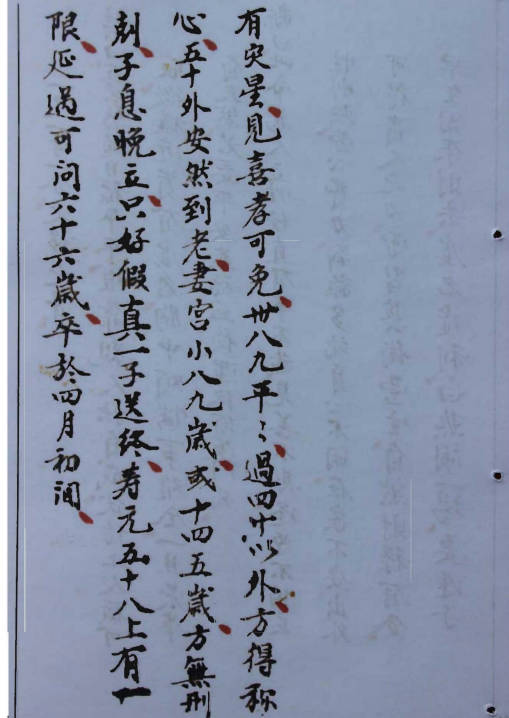 有灾星見喜孝可免卅八九平〻過四十以外方得称
心五十外安然到老妻宮小八九歲或十四五歲方無刑
尅子息晚立只好假真一子送終寿元五十八上有一
限延過可问六十六歲卒於四月初间